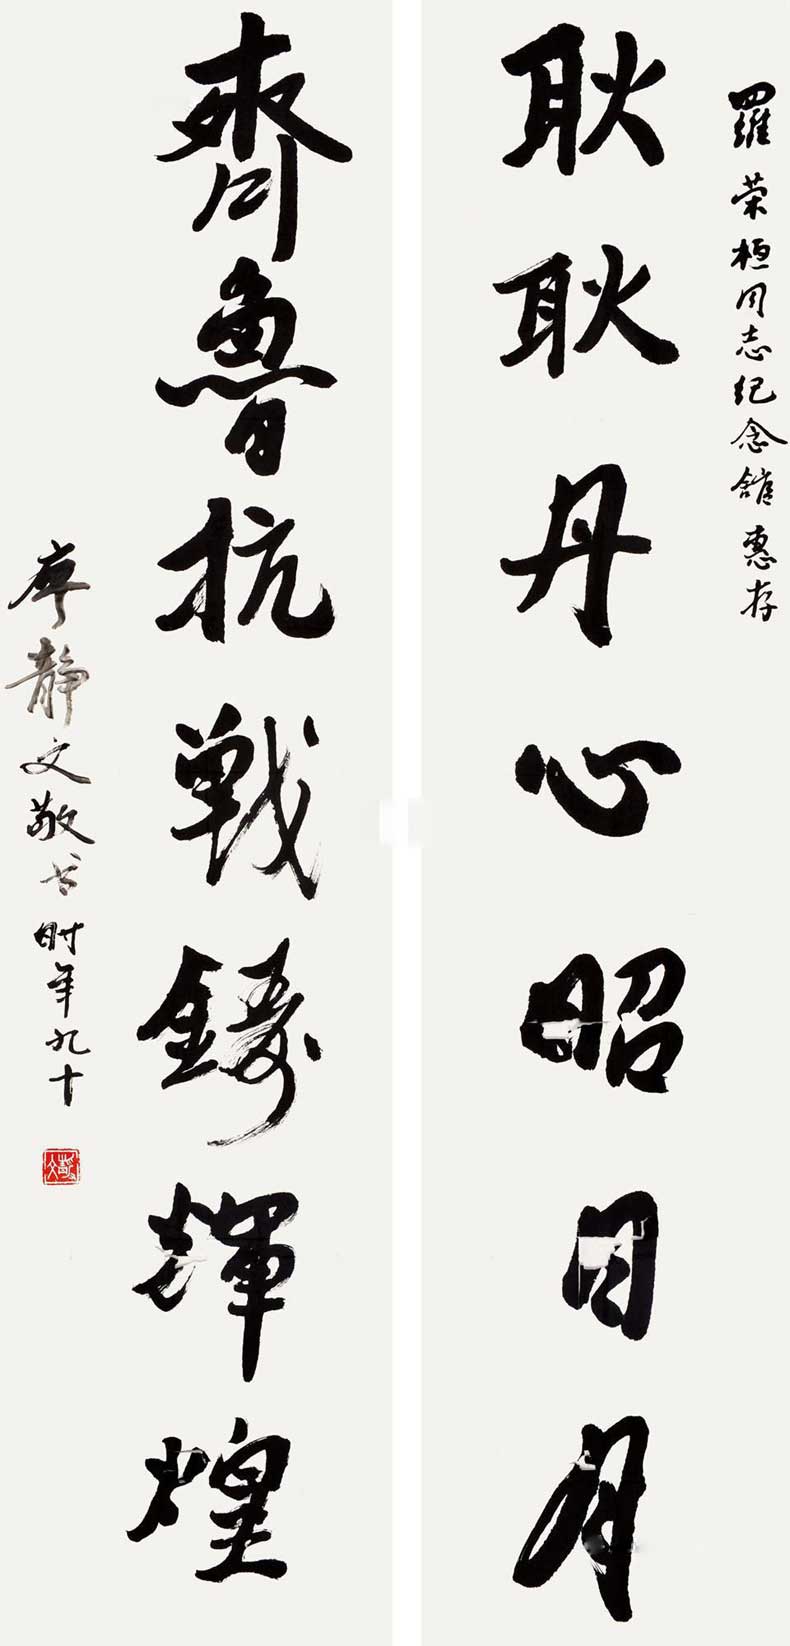 羅荣桓同志纪念館惠存
耿耿丹心昭日月
齊魯抗戰鑄輝煌
廖静文敬书时年九十